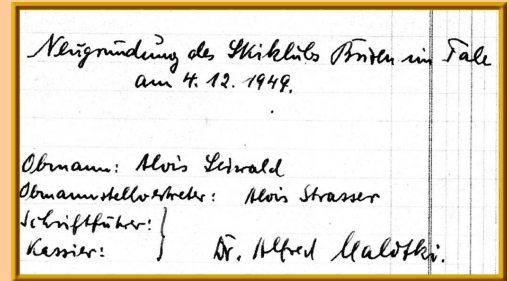 Neugründung des Skiklubs Brixen im Tale
am 4. 12. 1949.
Obmann: Alois Leiwald
Obmannstellvertreter: Alois Strasser
Schriftführer: }
Kassier: } Dr. Alfred Malotki.